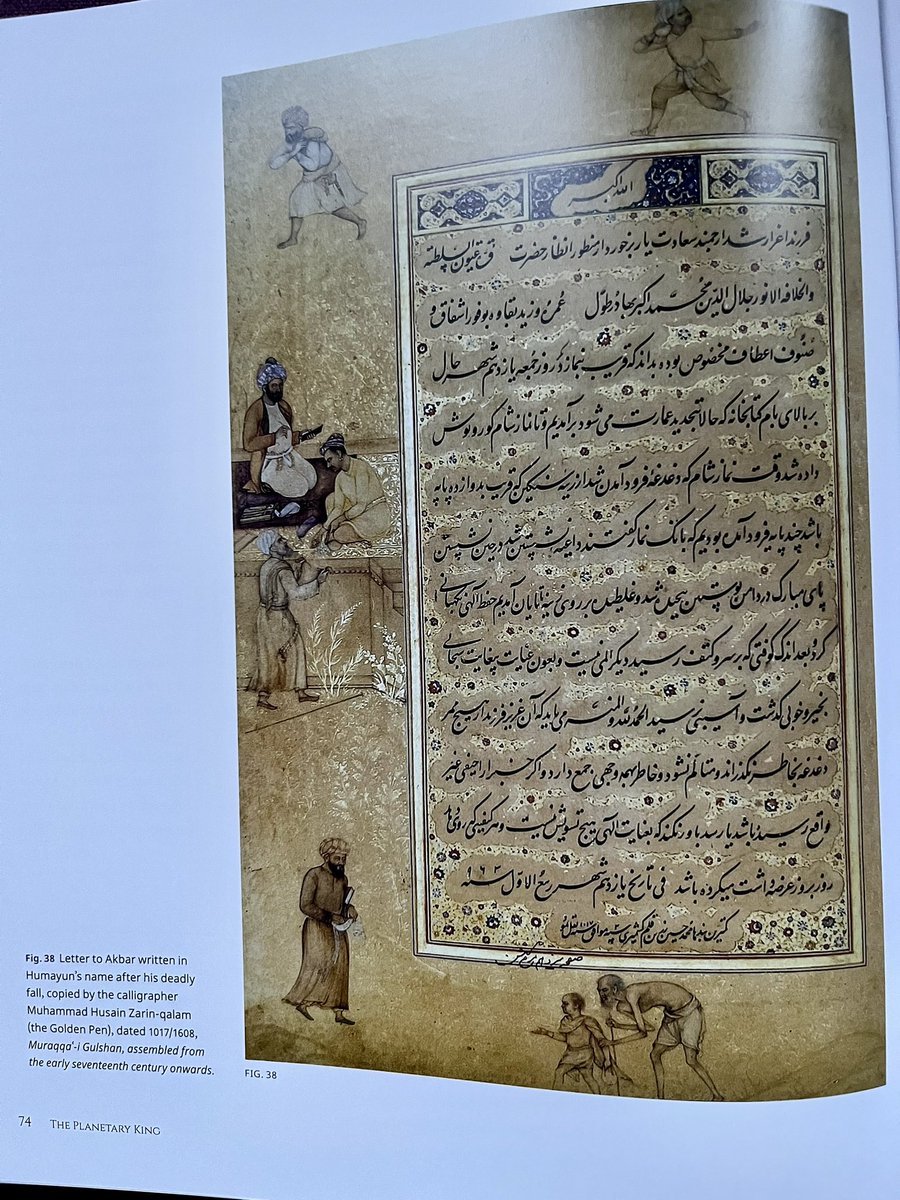 الله اکبر
فرزند اعز ارشد ارجمند سعادت یار برخوردار منظور انظار حضرت
والخلافه الانور جلال الدین محمد اکبر بهادر طول عمره و زید بقاوه بوفور اشفاق و
صنوف اعطاف مخصوص بوده بداند که قریب نماز دکر روز جمعه یازدهم شهر حال
بر بالای بام کتابخانه که حالا تجدید عمارت می شود برآمدیم و تا نماز شام کورنوش
داده شد وقت نماز شام که دغدغه فرود آمدن شد از زینه سنکین که قریب بدوازده پایه
باشد چند پایه فرود آمده بودیم که بانک نماز کفتند داعیه نشستن شد در حین نشستن
پای مبارک در دامن پوستین پیچیده شد و غلطیده بر روی زینه تا پایان آمدیم حفظ الهی نکهبانی
کرد و بعد اندک کوفتی که بر سر و کتف رسید دیکر المی نیست و بعون عنایت بیغایت سبحانی
بخیر و خوبی کذشت و آسیبی نرسید الحمد لله والمنه می باید که آن عزیز فرزند از هیچ ممر
دغدغه بخاطر نکذراند و متالم نشود و خاطر بهمه وجهی جمع دارد و اکر خبر اراجیفی غیر
واقع رسیده باشد یا رسد باور نکند که بعنایت الهی هیچ تشویش نیست و هر کیفیتی که روی دهد
روز بروز عرضه داشت میکرده باشد فی تاریخ یازدهم شهر ربیع الاول سنه ۹۶۳
کمترین بندها محمد حسین زرین قلم کشمیری
Fig. 38 Letter to Akbar written in
Humayun's name after his deadly
fall, copied by the calligrapher
Muhammad Husain Zarin-qalam
(the Golden Pen), dated 1017/1608,
Muraqqa'-i Gulshan, assembled from
the early seventeenth century onwards.
FIG. 38
74 THE PLANETARY KING